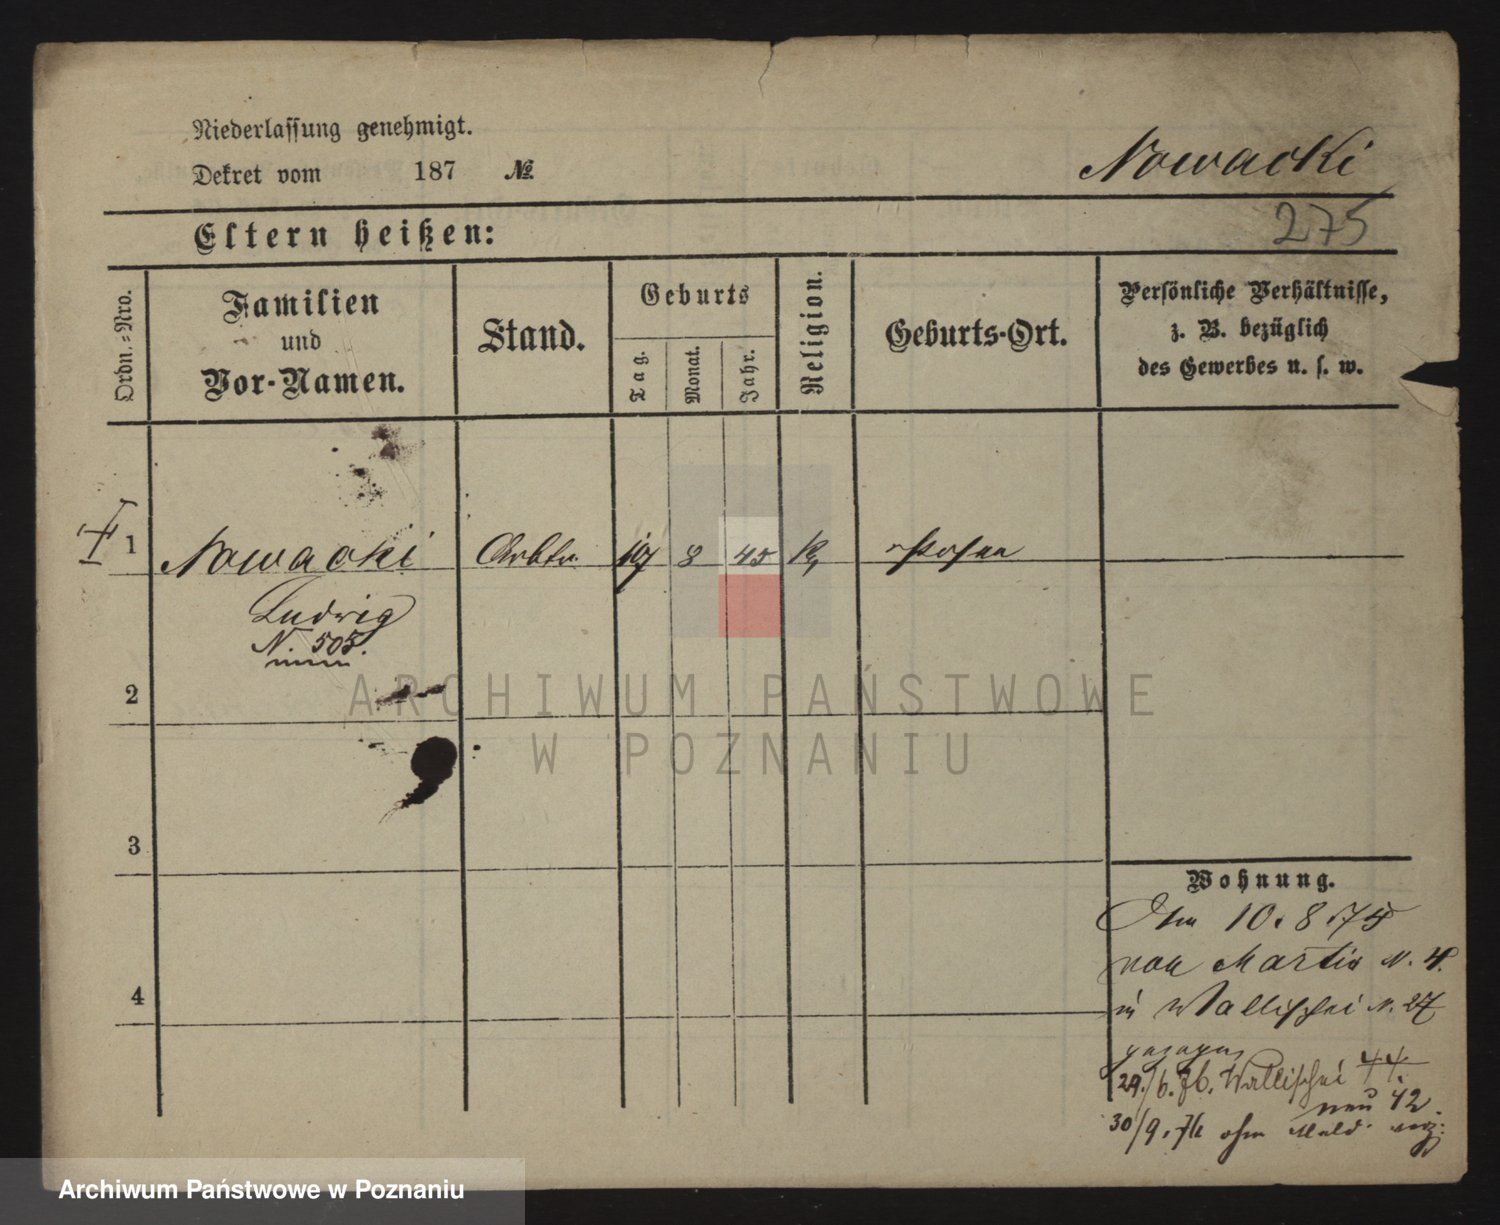 Niederlassung genehmigt.
Dekret vom 187 №
Nowacki
275
Eltern heißen:
Ordn.-Nro.
Familien
und
Vor-Namen.
Stand.
Geburts
Tag.
Monat.
Jahr.
Religion.
Geburts-Ort.
Persönliche Verhältnisse,
z. B. bezüglich
des Gewerbes u. s. w.
1 Nowacki Arbtr 8 45 K. Posen
Ludwig
N. 505.
2
3
4
Wohnung.
10. 8. 75
von Martin N. 4.
in Wallischei N. 27
gezogen
29./6. 76. Wallischei 44.
neu 42.
30/9. 76 ohne Meld. verz.
ARCHIWUM PAŃSTWOWE
W POZNANIU
Archiwum Państwowe w Poznaniu